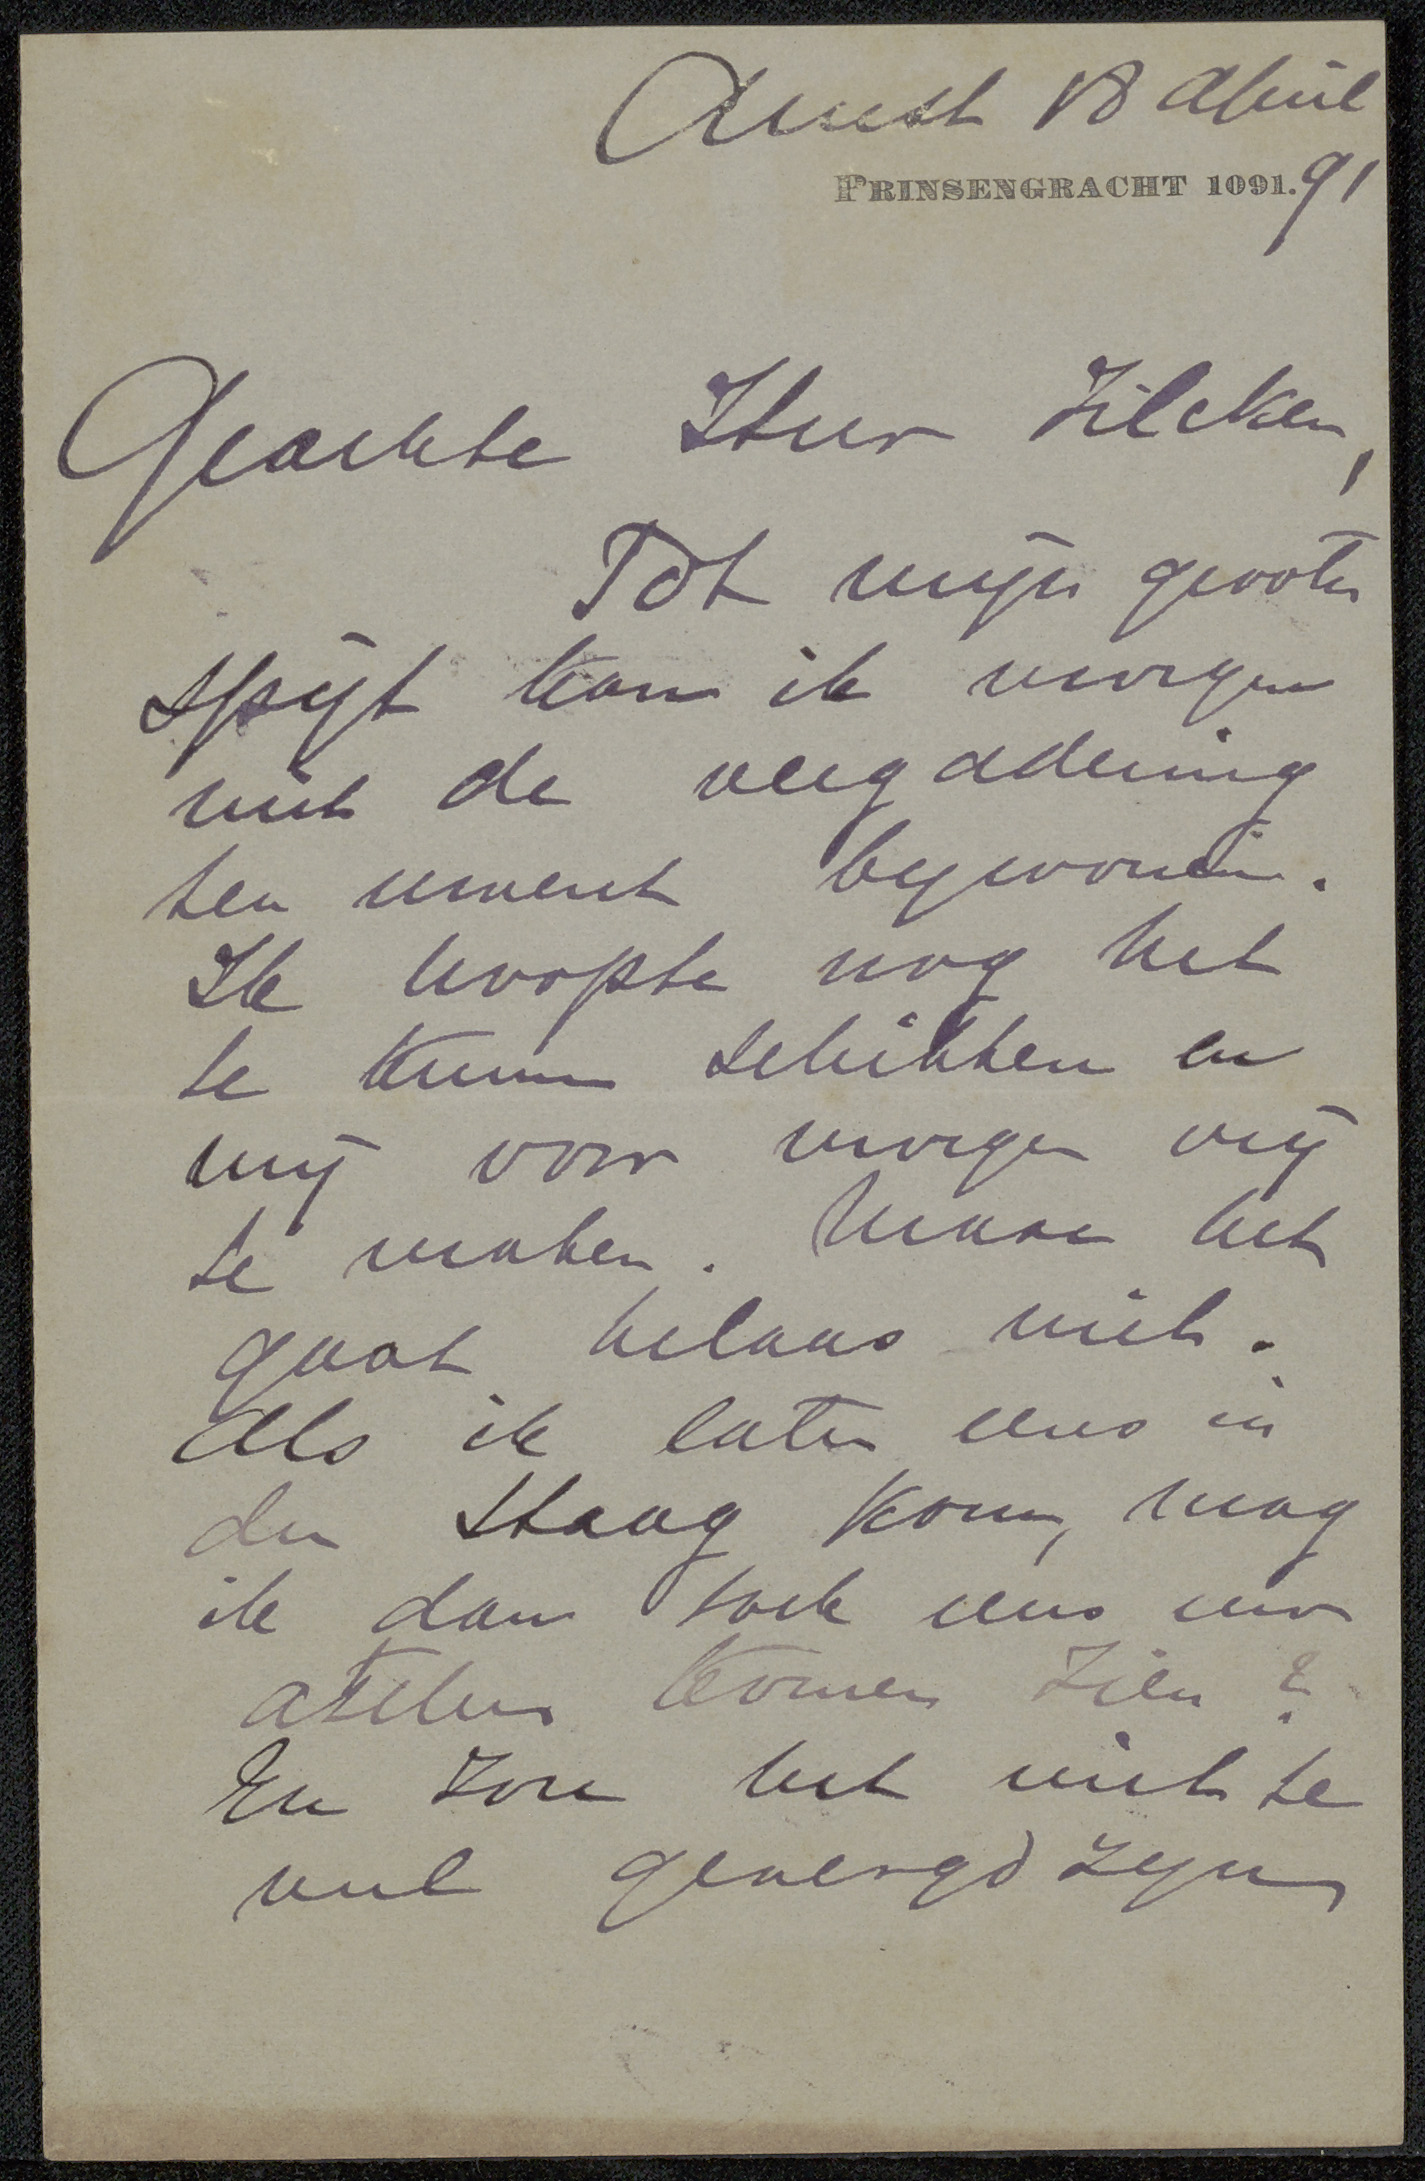 Amst 18 April
PRINSENGRACHT 1091. 91
Geachte Heer Zilcken,
Tot mijn grooten
spijt kan ik morgen
niet de vergadering
ten uwent bijwonen.
Ik hoopte nog het
te kunnen schikken en
mij voor morgen vrij
te maken. Maar het
gaat helaas niet.
Als ik later eens in
den Haag kom, mag
ik dan toch eens uw
atelier komen zien?
En zou het niet te
veel gevergd zijn,